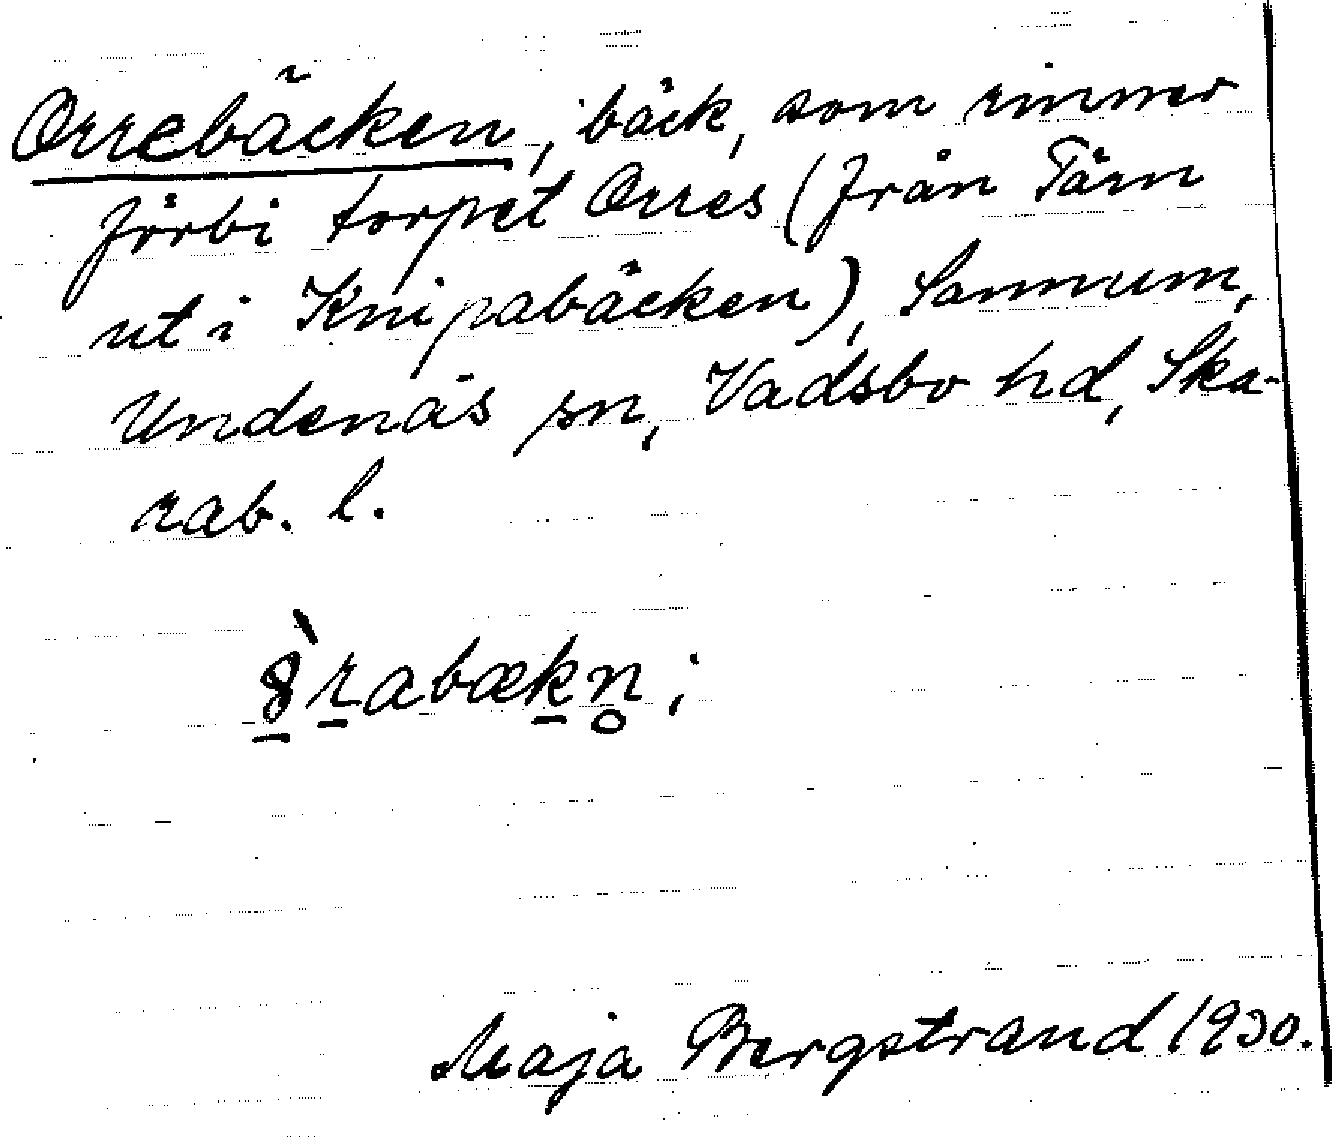 Orrebäcken, bäck, som rinner
förbi torpet Orres (från Tärn
ut i Knipabäcken), Sannum,
Undenäs sn, Vadsbo hd, Ska-
rab. l.
ꝏ̀rabækn̥;
Maja Bergstrand 1930.